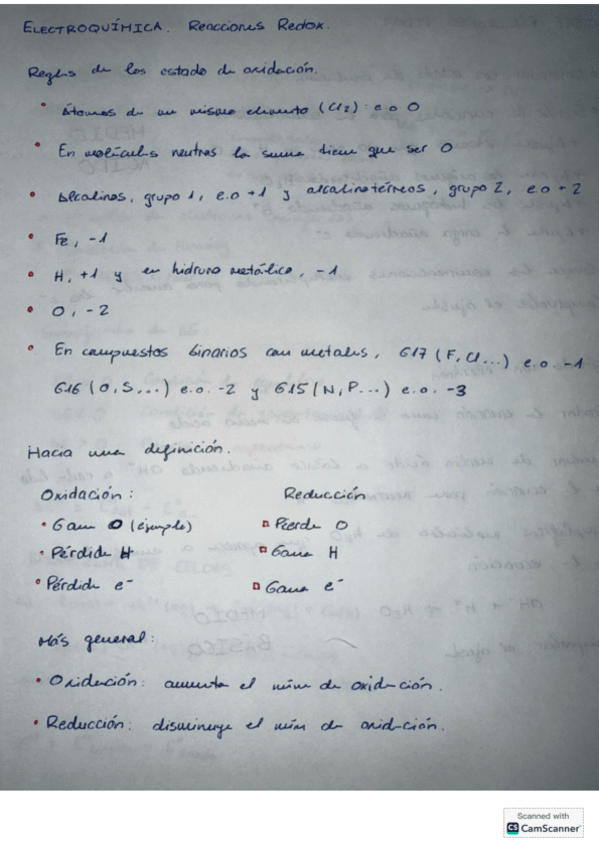 ELECTROQUÍMICA. Reacciones Redox.
Reglas de los estado de oxidación.
• Átomos de un mismo elemento (Cl2): e.o 0
• En moléculas neutras la suma tiene que ser 0
• Alcalinos, grupo 1, e.o +1 y alcalinotérreos, grupo 2, e.o + 2
• Fe, -1
• H, +1 y en hidruro metálico, -1
• O, -2
• En compuestos binarios con metales, G17 (F, Cl...) e.o. -1
G16 (O, S...) e.o. -2 y G15 (N, P...) e.o. -3
Hacia una definición.
Oxidación: Reducción
• Gana O (ejemplo) Pierde O
• Pérdida H Gana H
• Pérdida e⁻ Gana e⁻
Más general:
• Oxidación: aumenta el núm de oxidación.
• Reducción: disminuye el núm de oxidación.
Scanned with
CS CamScanner